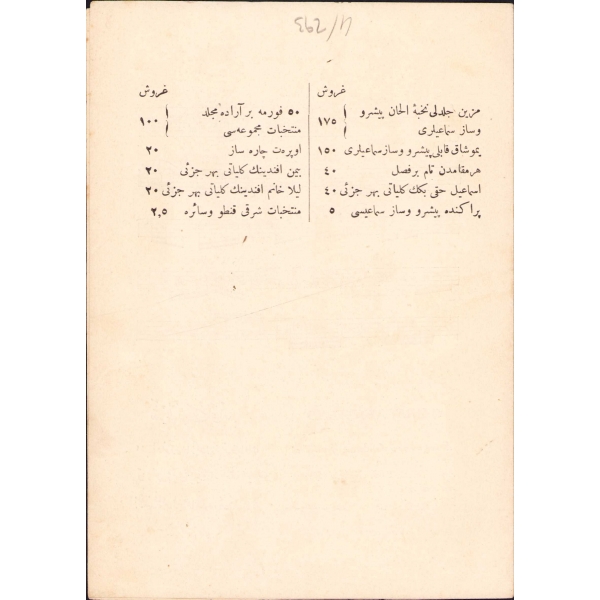 11/293
غروش
مزین جلدلی نخبهٔ الحان پیشرو
وساز سماعیلری ۱۷۵
یموشاق قابلی پیشرو وساز سماعیلری ۱۵۰
هر مقامدن تام بر فصل ۴۰
اسماعیل حقی بكك كلیاتی بهر جزئی ۴۰
پراكنده پیشرو وساز سماعیسی ۵
غروش
۵۰ فورمه بر آراده مجلد
منتخبات مجموعه‌سی ۱۰۰
اوپره‌ت چاره ساز ۲۰
بیمن افندینك كلیاتی بهر جزئی ۲۰
لیلا خانم افندینك كلیاتی بهر جزئی ۲۰
منتخبات شرقی قنطو وسائره ۲,۵